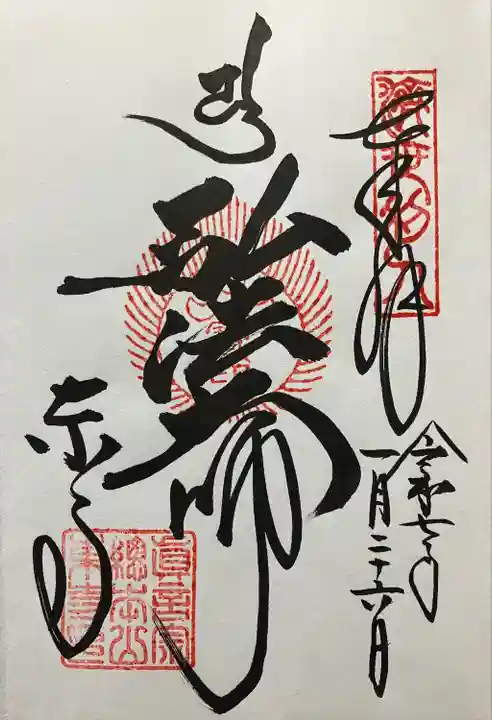 奉拝
令和七年
一月二十六日
弘法大師
東寺
真言宗
總本山
東寺印